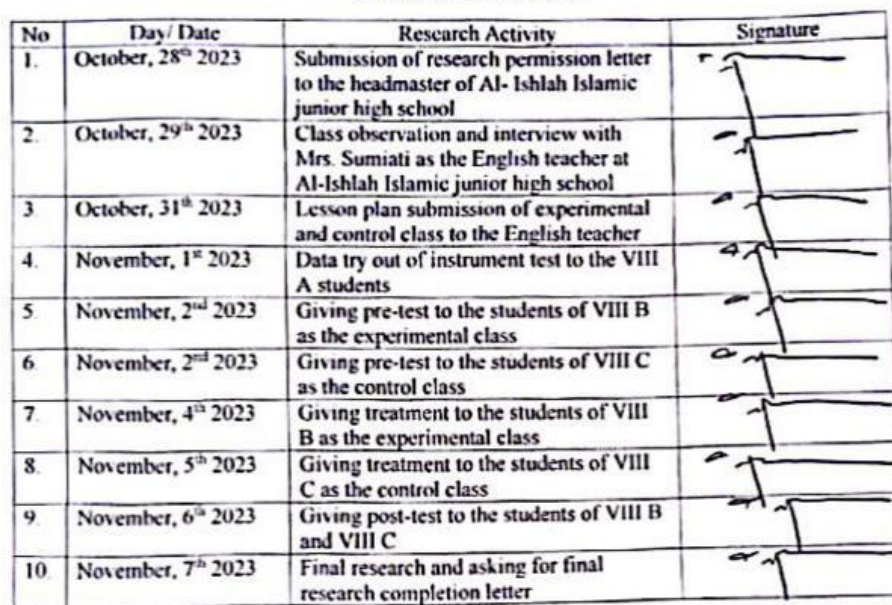 No Day/ Date Research Activity Signature
1. October, 28th 2023 Submission of research permission letter
to the headmaster of Al- Ishlah Islamic
junior high school
2. October, 29th 2023 Class observation and interview with
Mrs. Sumiati as the English teacher at
Al-Ishlah Islamic junior high school
3. October, 31th 2023 Lesson plan submission of experimental
and control class to the English teacher
4. November, 1st 2023 Data try out of instrument test to the VIII
A students
5. November, 2nd 2023 Giving pre-test to the students of VIII B
as the experimental class
6. November, 2nd 2023 Giving pre-test to the students of VIII C
as the control class
7. November, 4th 2023 Giving treatment to the students of VIII
B as the experimental class
8. November, 5th 2023 Giving treatment to the students of VIII
C as the control class
9. November, 6th 2023 Giving post-test to the students of VIII B
and VIII C
10. November, 7th 2023 Final research and asking for final
research completion letter